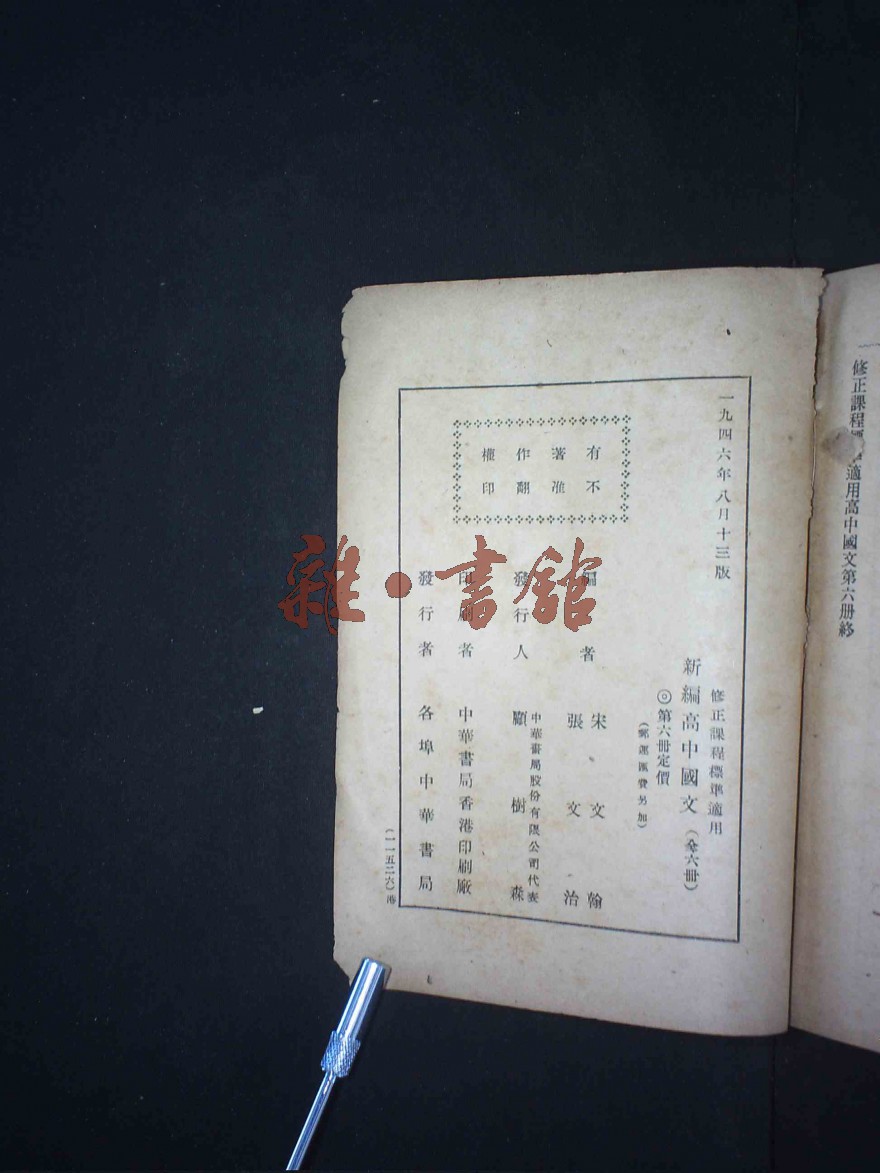 修正課程標準適用高中國文第六册終
一九四六年八月十三版
修正課程標準適用
新編高中國文（全六冊）
◎第六冊定價
（郵運匯費另加）
有不
著准
作翻
權印
編者 宋文翰
張文治
發行人 中華書局股份有限公司代表
顧樹森
印刷者 中華書局香港印刷廠
發行者 各埠中華書局
（一一五二六）港
雜·書館